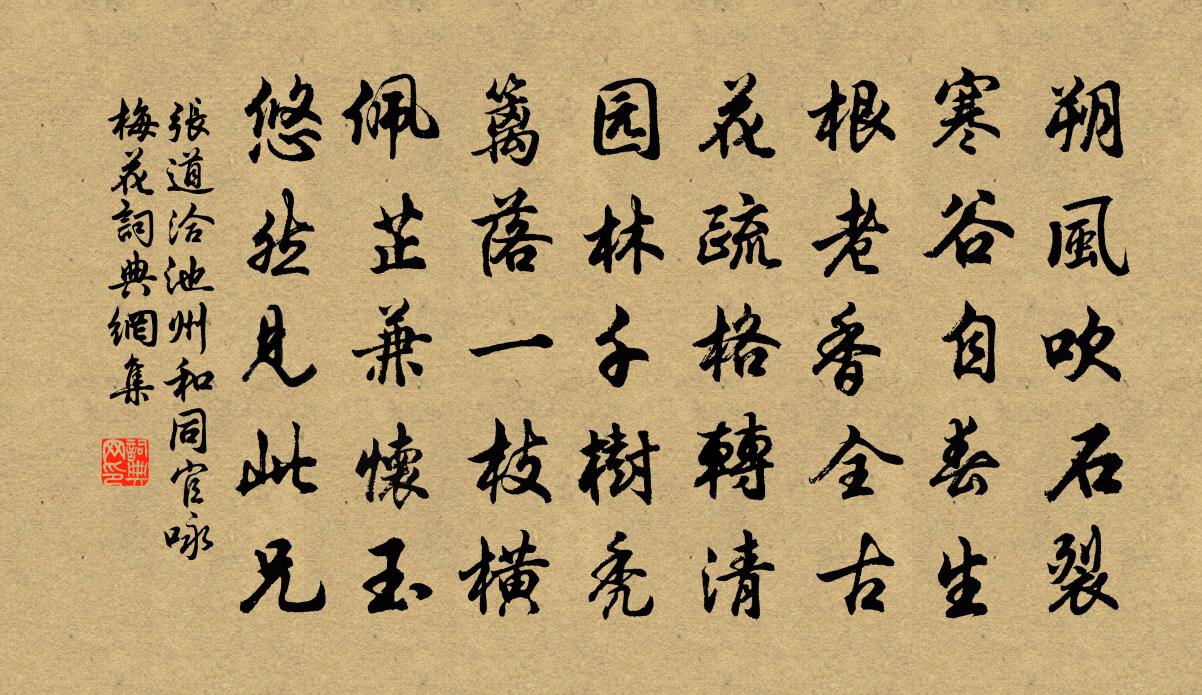 朔風吹石裂
寒谷自春生
根老香全古
花疏格轉清
园林千樹禿
篱落一枝橫
佩芷兼懷玉
悠然見此兄
張道洽池州和同官咏
梅花詞典網集
詞典网印